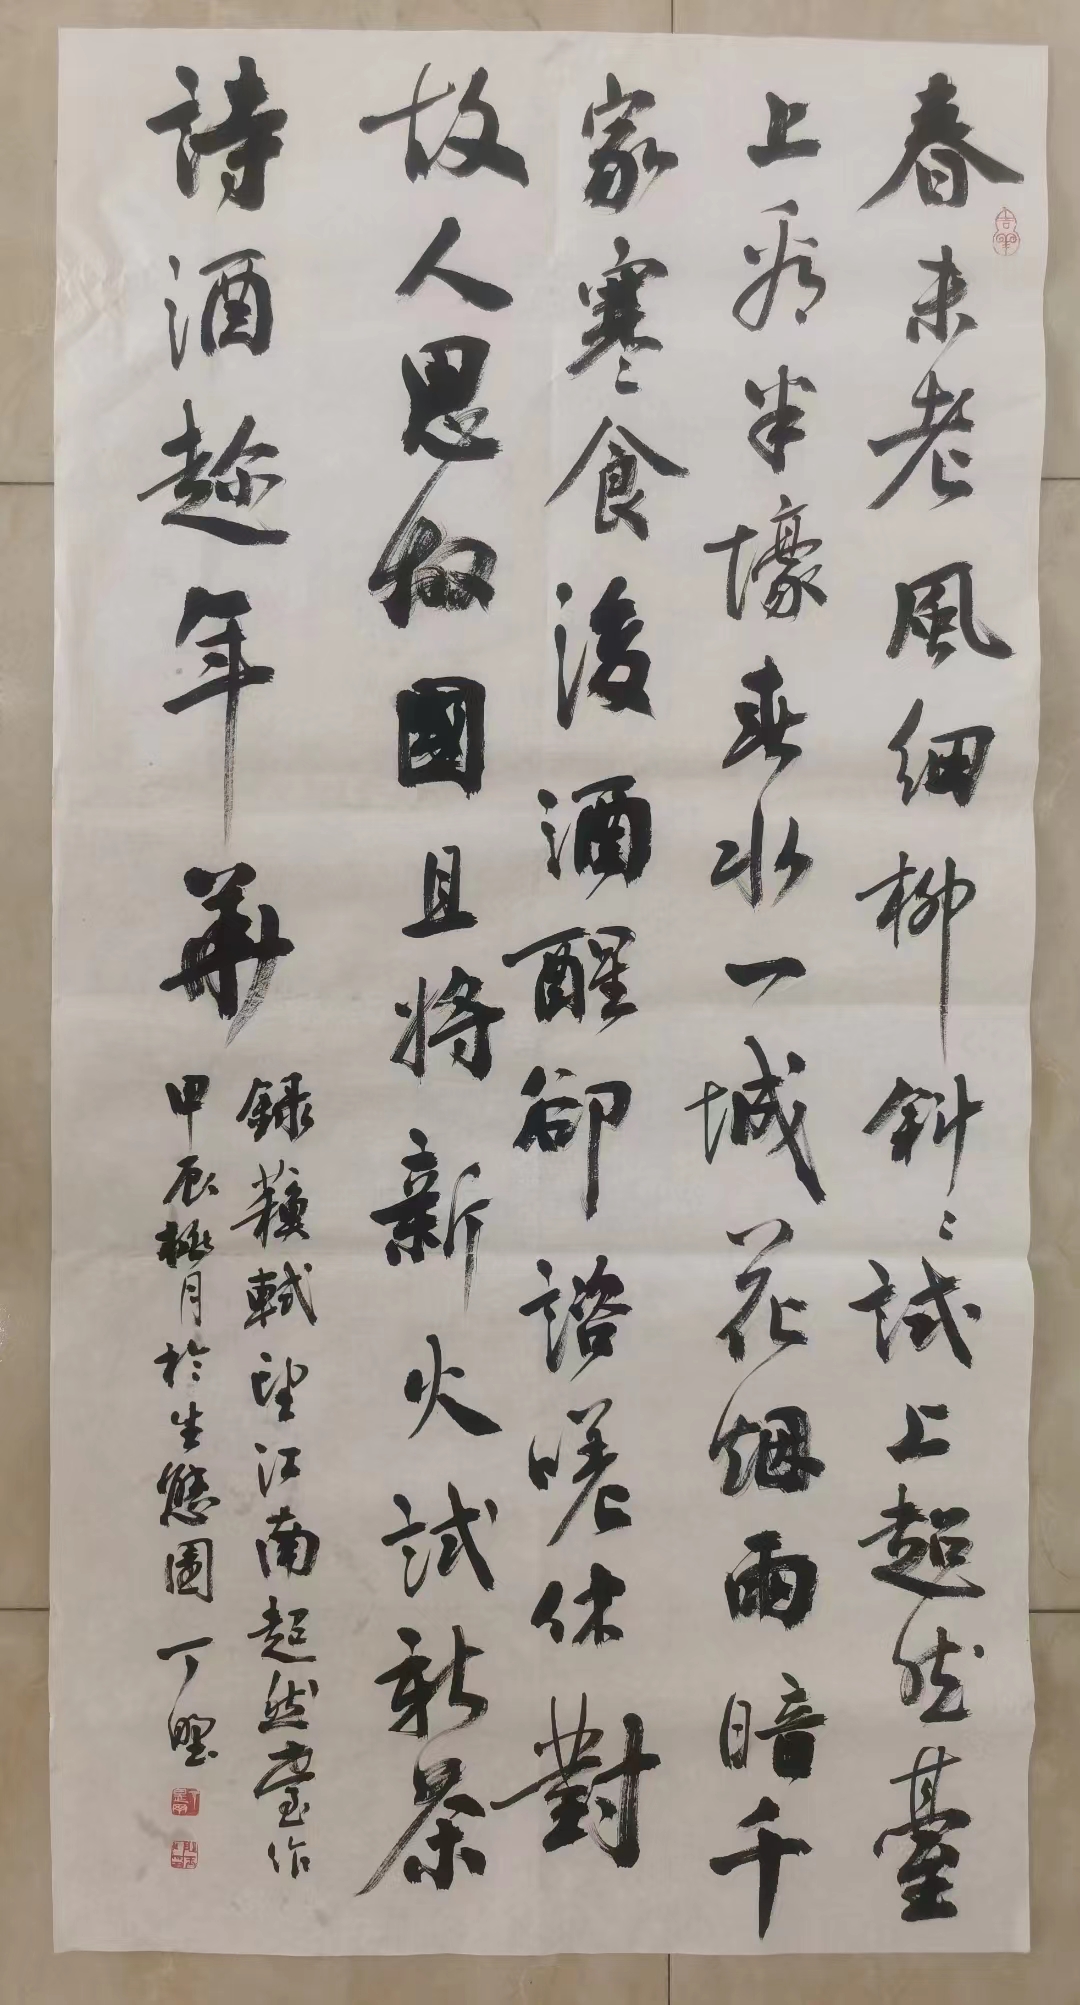 春未老風細柳斜〻試上超然臺
上看半壕春水一城花烟雨暗千
家寒〻食後酒醒卻諮嗟休對
故人思故國且將新火試新茶
詩酒趁年華
錄蘇軾望江南超然臺作
甲辰極月於生態園丁野